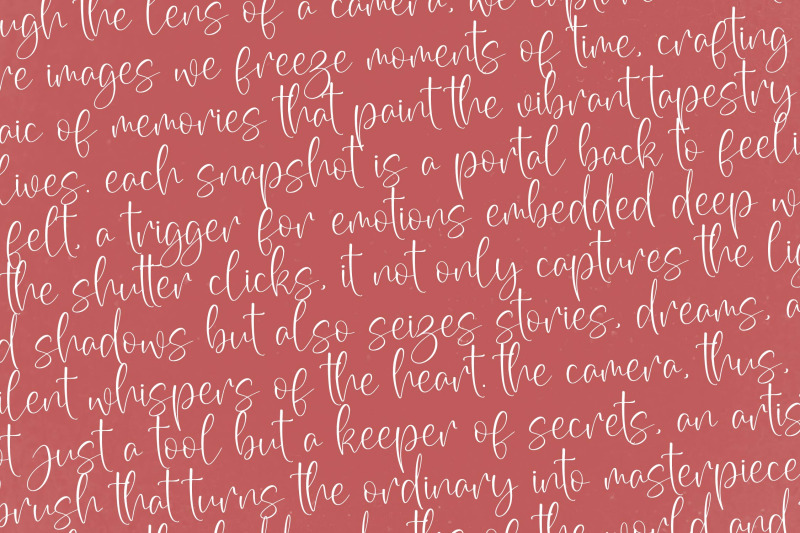 ugh the lens of a camera, we capture
re images we freeze moments of time, crafting
aic of memories that paint the vibrant tapestry
lives. each snapshot is a portal back to feeli
felt, a trigger for emotions embedded deep w
the shutter clicks, it not only captures the lig
d shadows but also seizes stories, dreams, a
ilent whispers of the heart. the camera, thus,
ot just a tool but a keeper of secrets, an artis
brush that turns the ordinary into masterpiece
of the world and